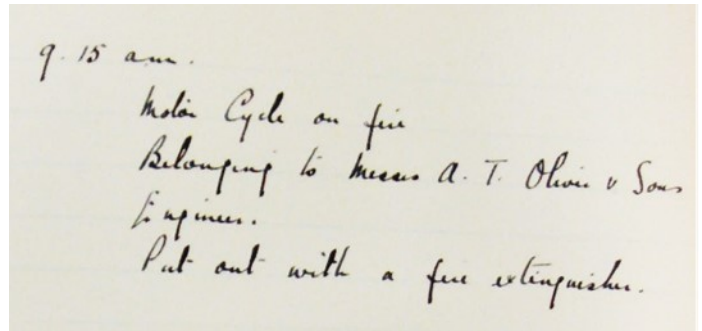 9.15 am.
Motor Cycle on fire
Belonging to Messrs A. T. Oliver & Sons
Engineers.
Put out with a fire extinguisher.